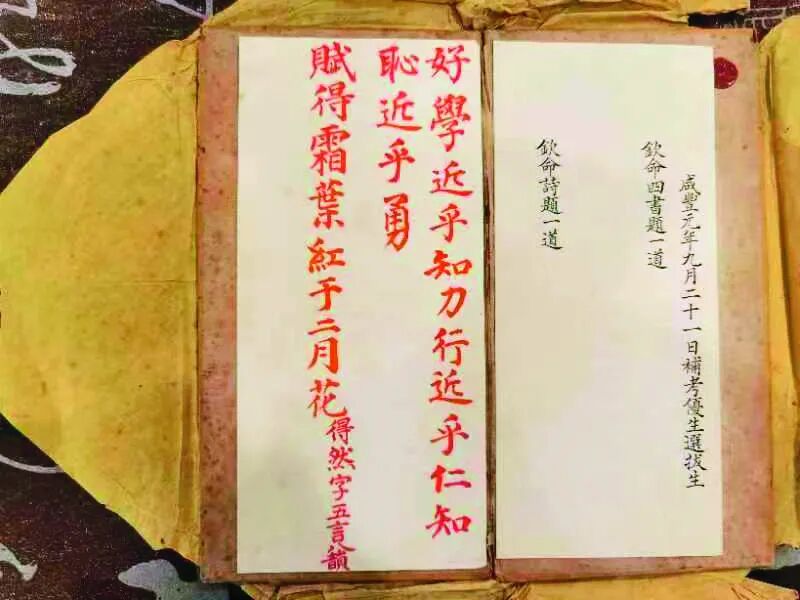 咸豐元年九月二十一日補考優生選拔生
欽命四書題一道
欽命詩題一道
好學近乎知力行近乎仁知
恥近乎勇
賦得霜葉紅于二月花得然字五言八韻